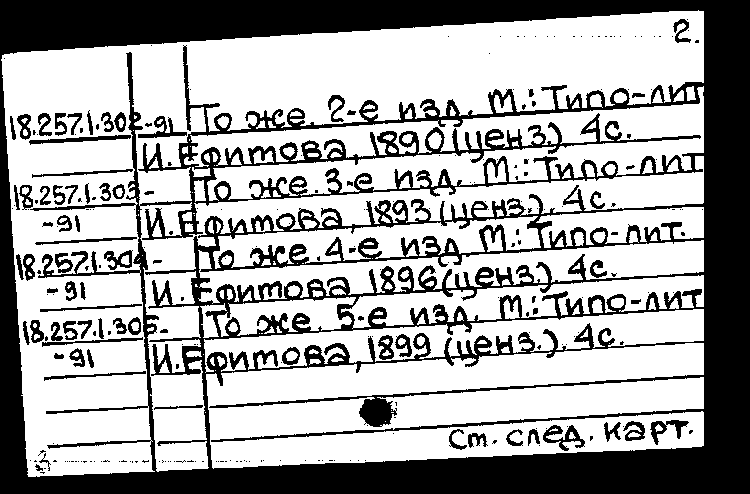 2.
18.257.1.302-91 То же. 2-е изд. М.: Типо-лит
И. Ефитова, 1890 (ценз.). 4с.
18.257.1.303- То же. 3-е изд. М.: Типо-лит
-91 И. Ефитова, 1893 (ценз.). 4с.
18.257.1.304- То же. 4-е изд. М.: Типо-лит.
-91 И. Ефитова 1896 (ценз.) 4с.
18.257.1.305- То же. 5-е изд. М.: Типо-лит
-91 И. Ефитова, 1899 (ценз.). 4с.
Ст. след. карт.